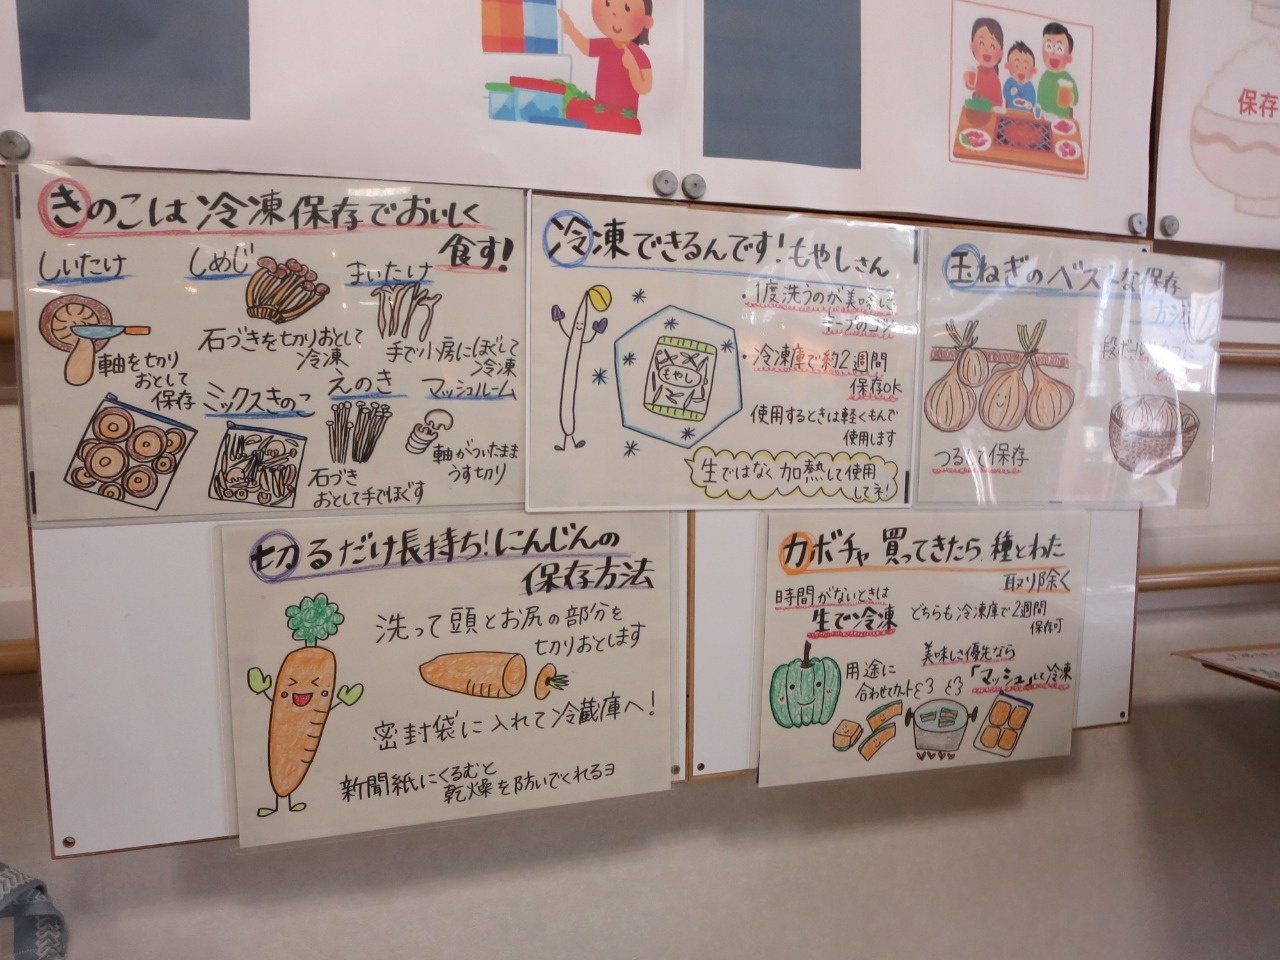 保存
きのこは冷凍保存でおいしく
食す!
しいたけ
軸を切り
おとして
保存
しめじ
石づきを切りおとして
冷凍
まいたけ
手で小房にほぐして
冷凍
ミックスきのこ
えのき
石づき
おとして手でほぐす
マッシュルーム
軸がついたまま
うす切り
冷凍できるんです!もやしさん
もやし
・1度洗うのが美味しさ
キープのコツ
・冷凍庫で約2週間
保存OK
使用するときは軽くもんで
使用します
生ではなく加熱して使用
してネ!
玉ねぎのベストな保存
方法
つるして保存
切るだけ長持ち!にんじんの
保存方法
洗って頭とお尻の部分を
切りおとします
密封袋に入れて冷蔵庫へ!
新聞紙にくるむと
乾燥を防いでくれるヨ
カボチャ買ってきたら種とわた
取り除く
時間がないときは
生で冷凍
どちらも冷凍庫で2週間
保存可
用途に
合わせてカット
美味しさ優先なら
「マッシュ」して冷凍